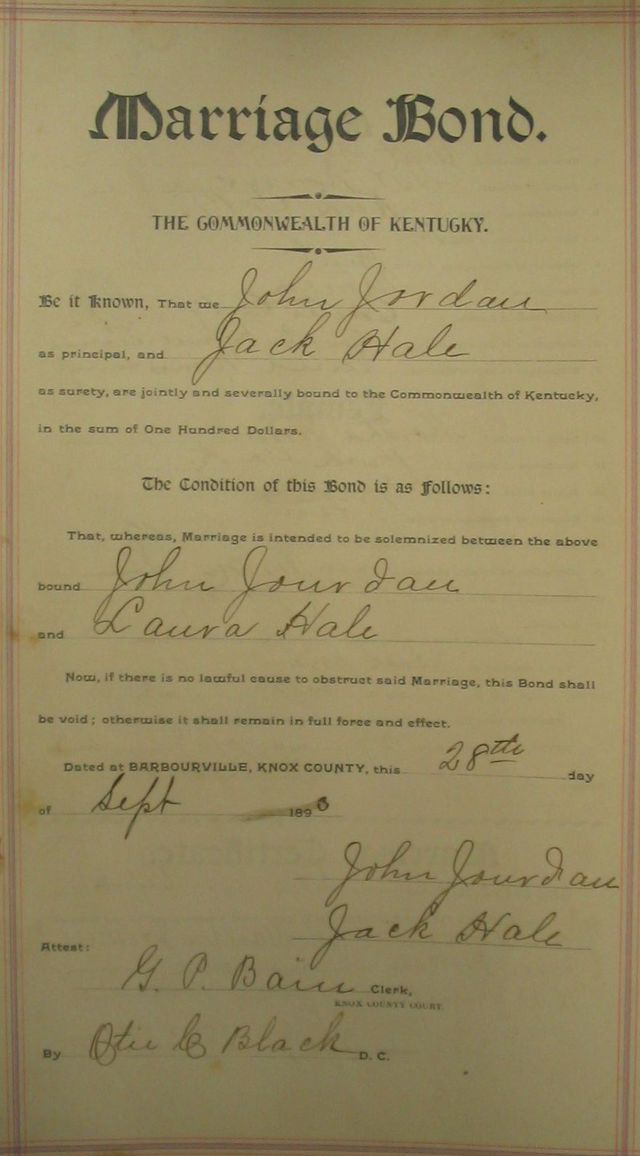 Marriage Bond.
THE COMMONWEALTH OF KENTUCKY.
Be it Known, That we John Jordan
as principal, and Jack Hale
as surety, are jointly and severally bound to the Commonwealth of Kentucky,
in the sum of One Hundred Dollars.
The Condition of this Bond is as follows:
That, whereas, Marriage is intended to be solemnized between the above
bound John Jourdan
and Laura Hale
Now, if there is no lawful cause to obstruct said Marriage, this Bond shall
be void; otherwise it shall remain in full force and effect.
Dated at BARBOURVILLE, KNOX COUNTY, this 28th day
of Sept 189
John Jourdan
Jack Hale
Attest:
G. P. Bain Clerk,
KNOX COUNTY COURT.
By Black D. C.